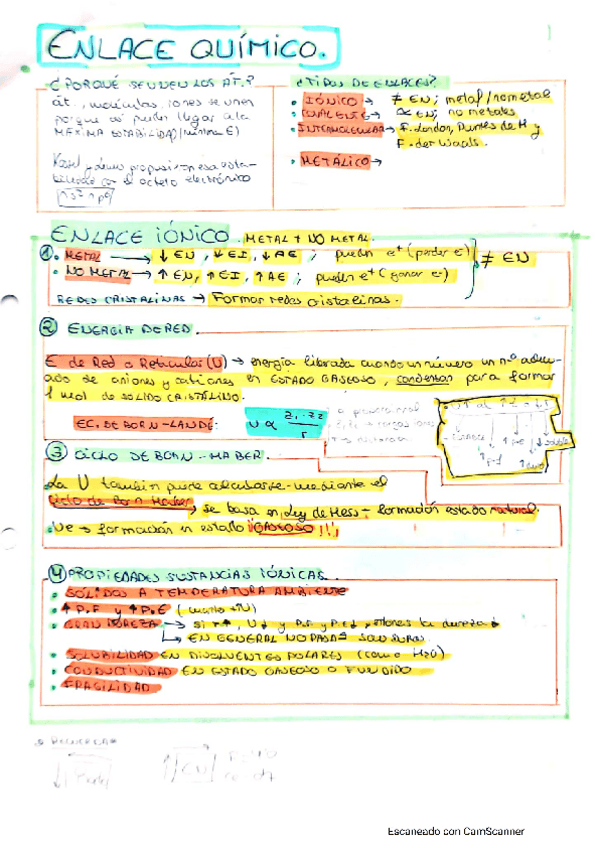 ENLACE QUÍMICO.
¿PORQUÉ SE UNEN LOS ÁT.?
át, moléculas, iones se unen
porque así pueden lugar a la
MÁXIMA ESTABILIDAD (mínima E)
Kossel y Lewis propusieron esta esta-
bilidad con el octeto electrónico
ns² np⁶
¿TIPOS DE ENLACES?
• IÓNICO → ≠ EN; metal/no metal
• COVALENTE → ≃ EN; no metales
• INTERMOLECULAR → F. London, Puentes de H y
F. der Waals.
• METÁLICO →
ENLACE IÓNICO. METAL + NO METAL.
1. METAL → ↓ EN, ↓ EI, ↓ AE; pueden e⁺ (perder e⁻)
• NO METAL → ↑ EN, ↑ EI, ↑ AE; pueden e⁺ (ganar e⁻)
≠ EN
REDES CRISTALINAS → Formar redes cristalinas.
2 ENERGIA DE RED.
E de Red o Reticular (U) → energía librada cuando un número un n.º adecu-
ado de aniones y cationes en ESTADO GASEOSO, condensan para formar
1 mol de SÓLIDO CRISTALINO.
EC. DE BORN-LANDÉ: U ∝ Z₁·Z₂ / r
3 CICLO DE BORN-HABER.
• La U también puede calcularse mediante el
Ciclo de Born Haber → se basa en Ley de Hess → formación estado natural.
• Ue → formación en estado ¡GASEOSO!!!
4 PROPIEDADES SUSTANCIAS IÓNICAS.
• SÓLIDOS A TEMPERATURA AMBIENTE
• ↑ P.F y ↑ P.E (cuanto +U)
• GRAN DUREZA → si r↑, U↓ y P.F y P.E↓, entonces la dureza ↓
↳ EN GENERAL NO PASA
• SOLUBILIDAD EN DISOLVENTES POLARES (como H₂O)
• CONDUCTIVIDAD EN ESTADO GASEOSO O FUNDIDO
• FRAGILIDAD
* RECUERDA*
Escaneado con CamScanner